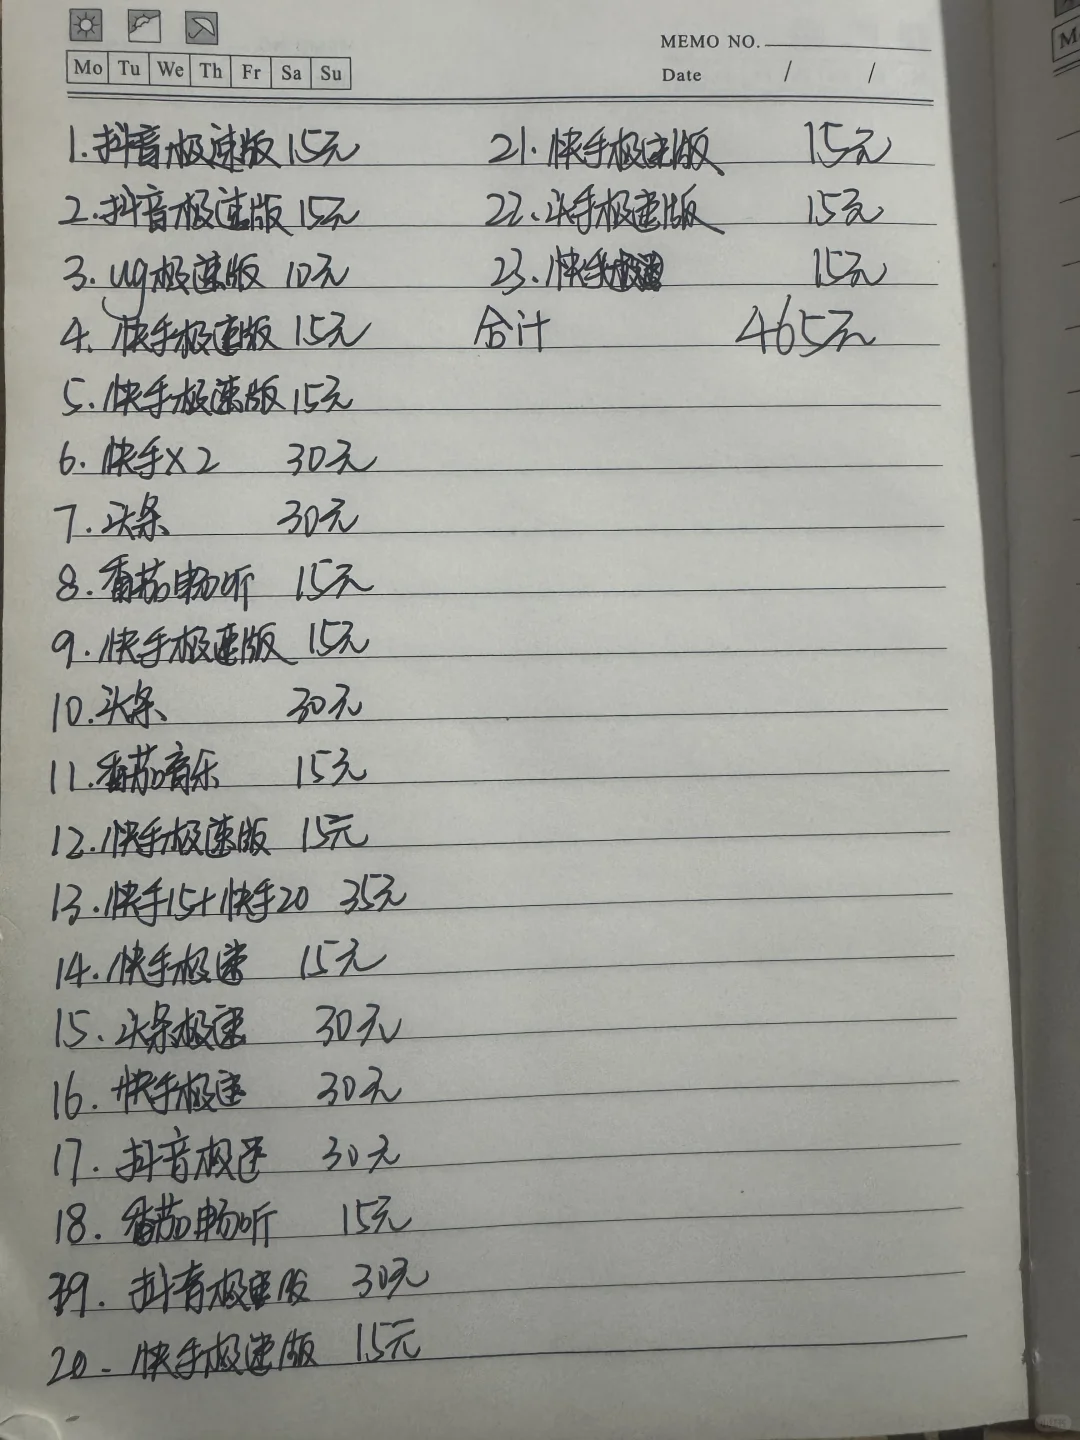 MEMO NO.
Mo Tu We Th Fr Sa Su
Date / /
1.抖音极速版 15元
2.抖音极速版 15元
3.ug极速版 10元
4.快手极速版 15元
5.快手极速版 15元
6.快手×2 30元
7.头条 30元
8.番茄畅听 15元
9.快手极速版 15元
10.头条 30元
11.番茄音乐 15元
12.快手极速版 15元
13.快手15+快手20 35元
14.快手极速 15元
15.头条极速 30元
16.快手极速 30元
17.抖音极速 30元
18.番茄畅听 15元
19.抖音极速版 30元
20.快手极速版 15元
21.快手极速版 15元
22.头手极速版 15元
23.快手极速 15元
合计 465元